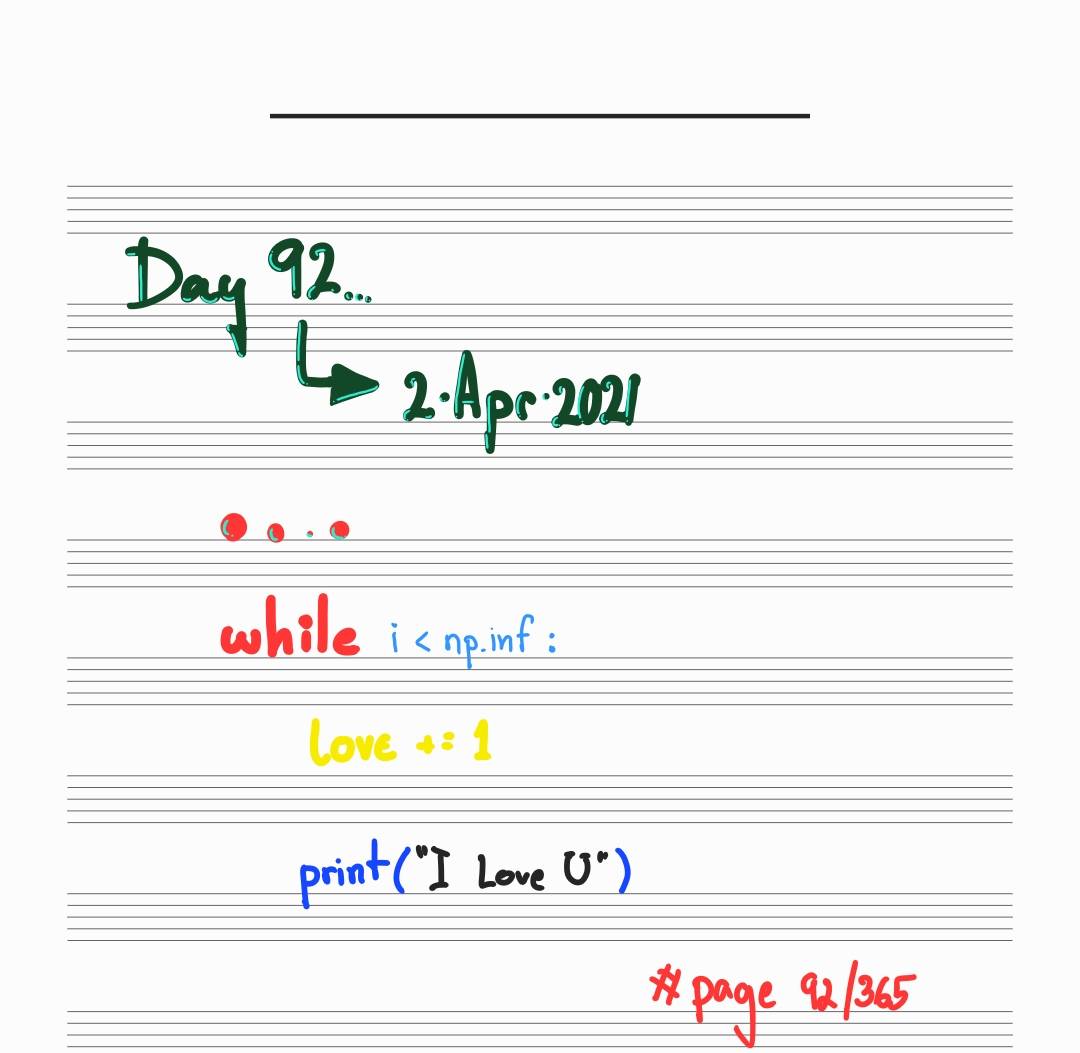 Day 92...
2.Apr.2021
....
while i < np.inf :
love += 1
print("I Love U")
# page 92/365